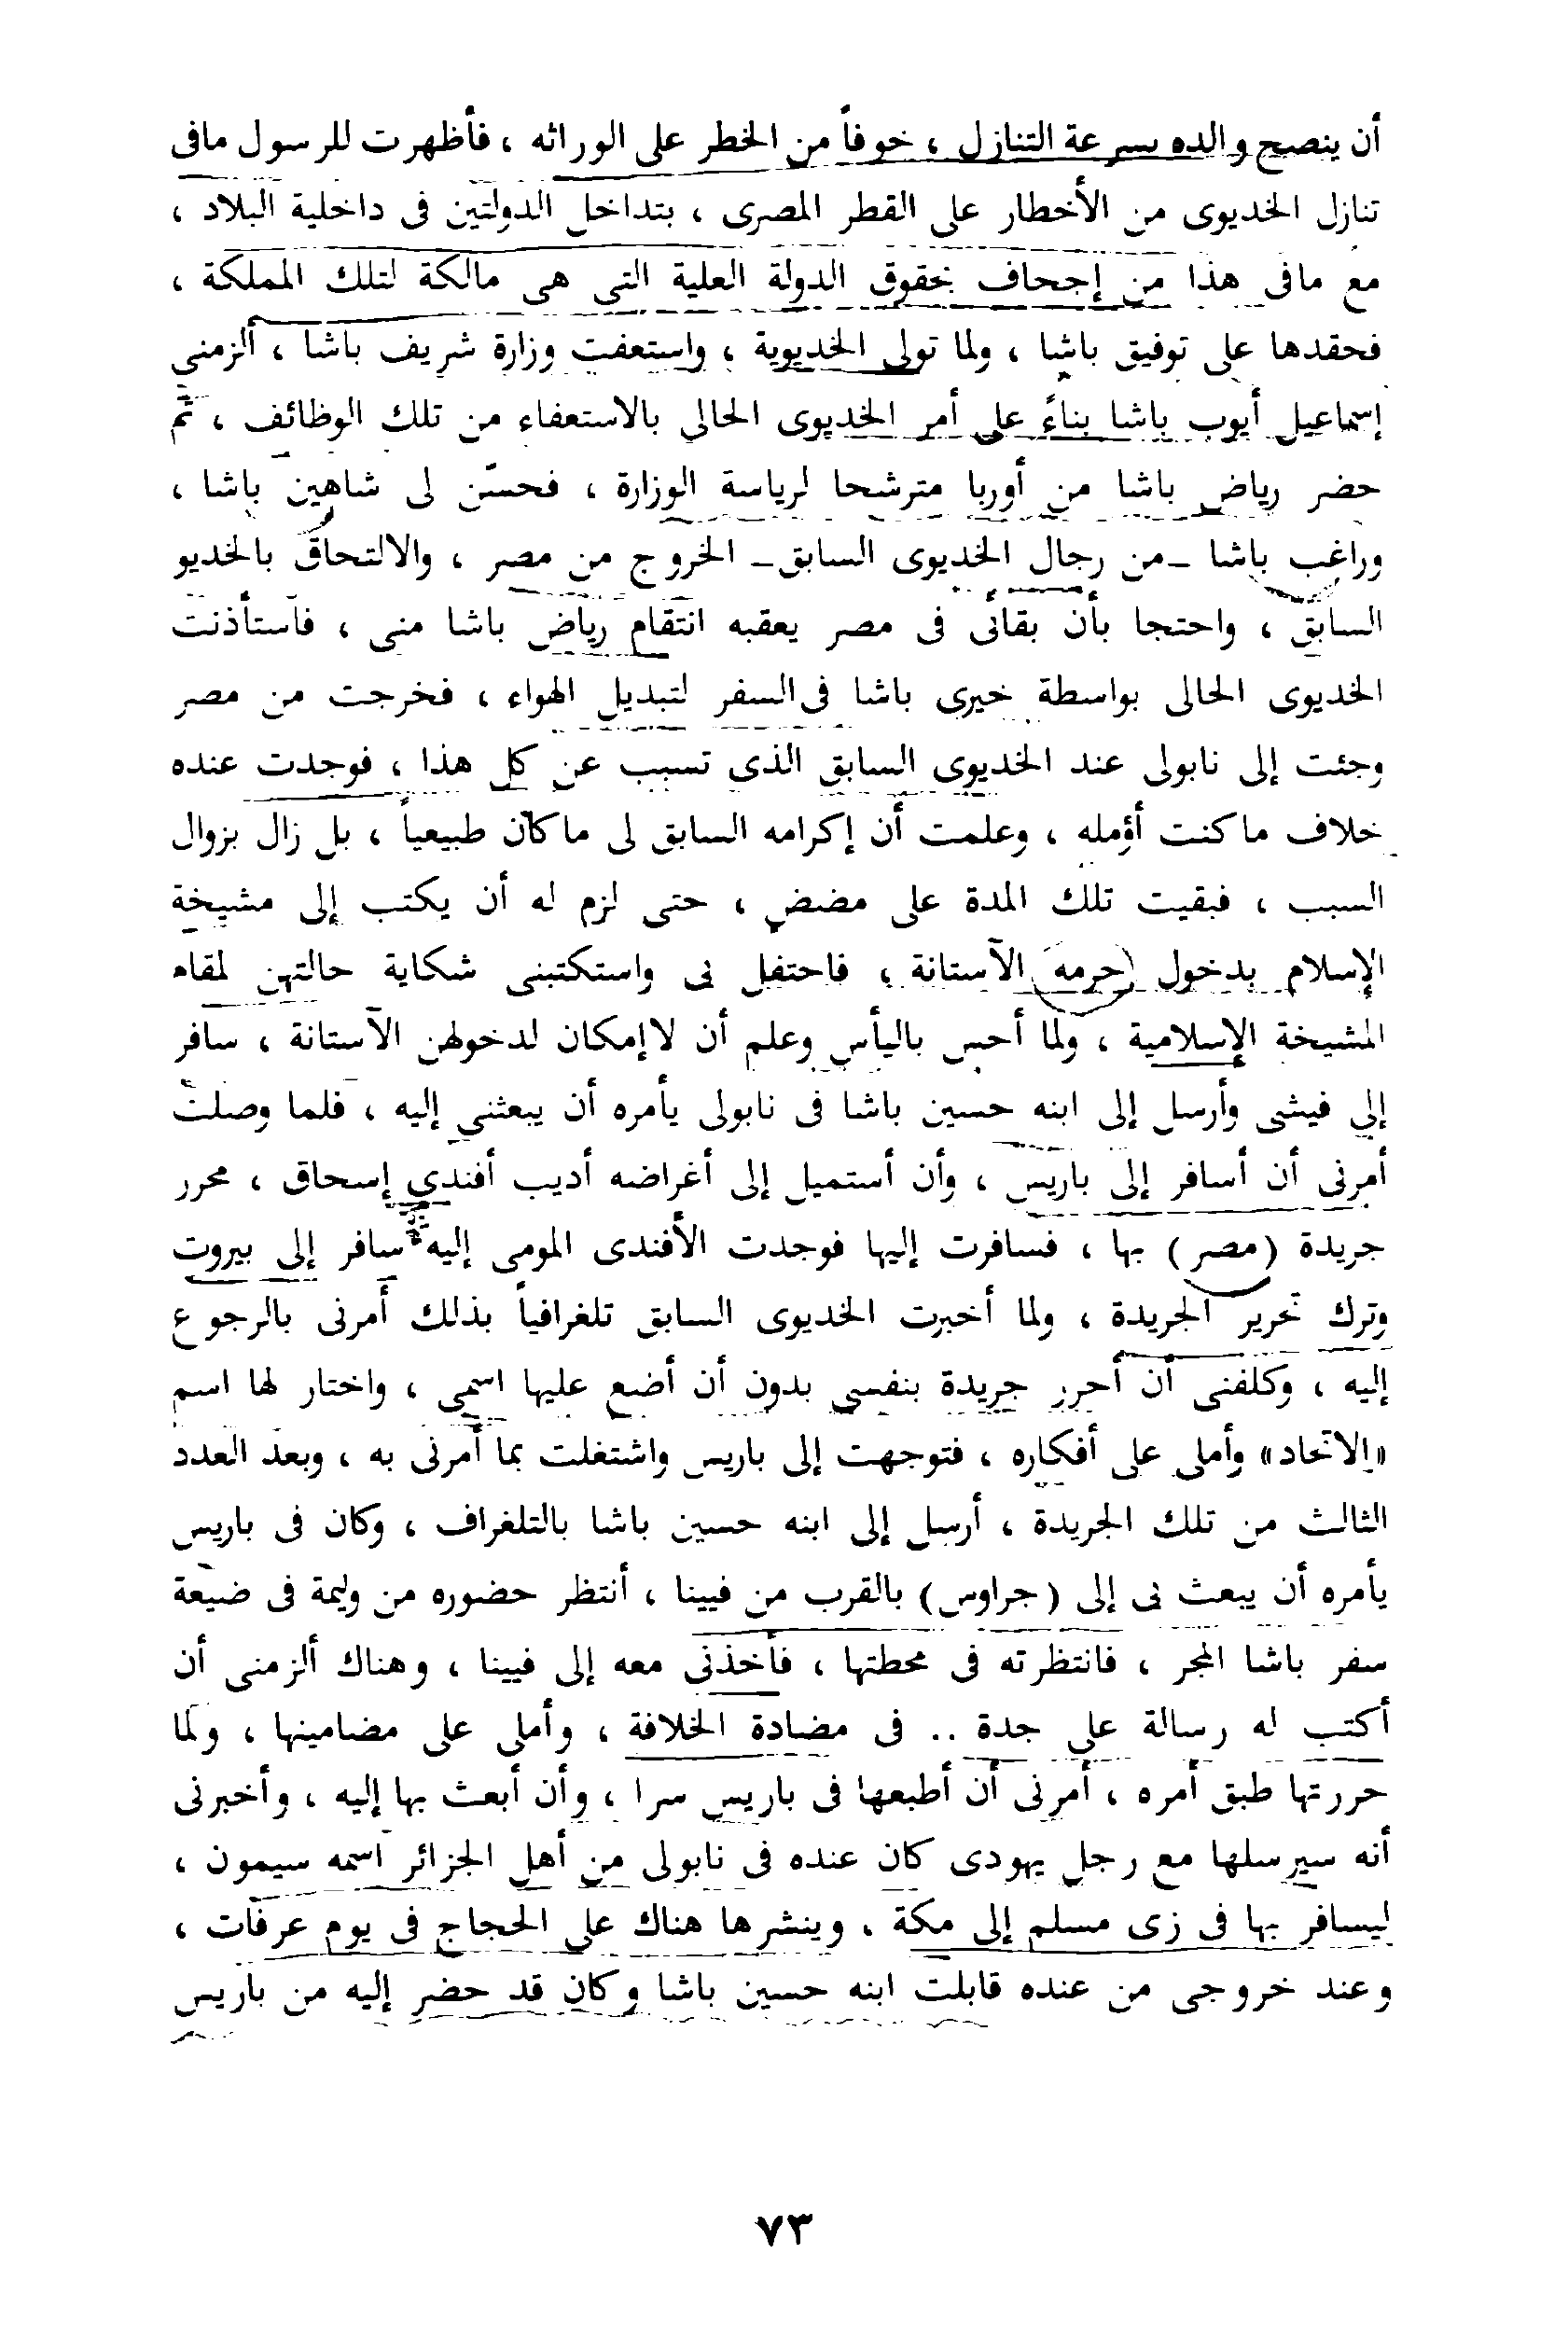 أن ينصح والده بسرعة التنازل ، خوفاً من الخطر على الوراثه ، فأظهرت للرسول مافى
تنازل الخديوى من الأخطار على القطر المصرى ، بتداخل الدولتين فى داخلية البلاد ،
مع مافى هذا من إجحاف بحقوق الدولة العلية التى هى مالكة لتلك المملكة ،
فحقدها على توفيق باشا ، ولما تولى الخديوية ، واستعفت وزارة شريف باشا ، ألزمنى
إسماعيل أيوب باشا بناءً على أمر الخديوى الحالى بالاستعفاء من تلك الوظائف ، ثم
حضر رياض باشا من أوربا مترشحا لرياسة الوزارة ، فحسّن لى شاهين باشا ،
وراغب باشا -من رجال الخديوى السابق- الخروج من مصر ، والالتحاق بالخديو
السابق ، واحتجا بأن بقائى فى مصر يعقبه انتقام رياض باشا منى ، فاستأذنت
الخديوى الحالى بواسطة خيرى باشا فى السفر لتبديل الهواء ، فخرجت من مصر
وجئت إلى نابولى عند الخديوى السابق الذى تسبب عن كل هذا ، فوجدت عنده
خلاف ماكنت أؤمله ، وعلمت أن إكرامه السابق لى ماكان طبيعياً ، بل زال بزوال
السبب ، فبقيت تلك المدة على مضض ، حتى لزم له أن يكتب إلى مشيخة
الإسلام بدخول (حرمه) الآستانة ، فاحتفل بى واستكتبنى شكاية حالتهن لمقام
المشيخة الإسلامية ، ولما أحس باليأس وعلم أن لاإمكان لدخولهن الآستانة ، سافر
إلى فيشى وأرسل إلى ابنه حسين باشا فى نابولى يأمره أن يبعثنى إليه ، فلما وصلت
أمرنى أن أسافر إلى باريس ، وأن أستميل إلى أغراضه أديب أفندي إسحاق ، محرر
جريدة (مصر) بها ، فسافرت إليها فوجدت الأفندى المومى إليه سافر إلى بيروت
وترك تحرير الجريدة ، ولما أخبرت الخديوى السابق تلغرافياً بذلك أمرنى بالرجوع
إليه ، وكلفنى أن أحرر جريدة بنفسى بدون أن أضع عليها اسمى ، واختار لها اسم
«الاتحاد» وأملى على أفكاره ، فتوجهت إلى باريس واشتغلت بما أمرنى به ، وبعد العدد
الثالث من تلك الجريدة ، أرسل إلى ابنه حسين باشا بالتلغراف ، وكان فى باريس
يأمره أن يبعث بى إلى (جراوس) بالقرب من فيينا ، أنتظر حضوره من وليمة فى ضيعة
سفر باشا المجر ، فانتظرته فى محطتها ، فأخذنى معه إلى فيينا ، وهناك ألزمنى أن
أكتب له رسالة على جدة .. فى مضادة الخلافة ، وأملى على مضامينها ، ولما
حررتها طبق أمره ، أمرنى أن أطبعها فى باريس سرا ، وأن أبعث بها إليه ، وأخبرنى
أنه سيرسلها مع رجل يهودى كان عنده فى نابولى من أهل الجزائر اسمه سيمون ،
ليسافر بها فى زى مسلم إلى مكة ، وينشرها هناك على الحجاج فى يوم عرفات ،
وعند خروجى من عنده قابلت ابنه حسين باشا وكان قد حضر إليه من باريس
٧٣